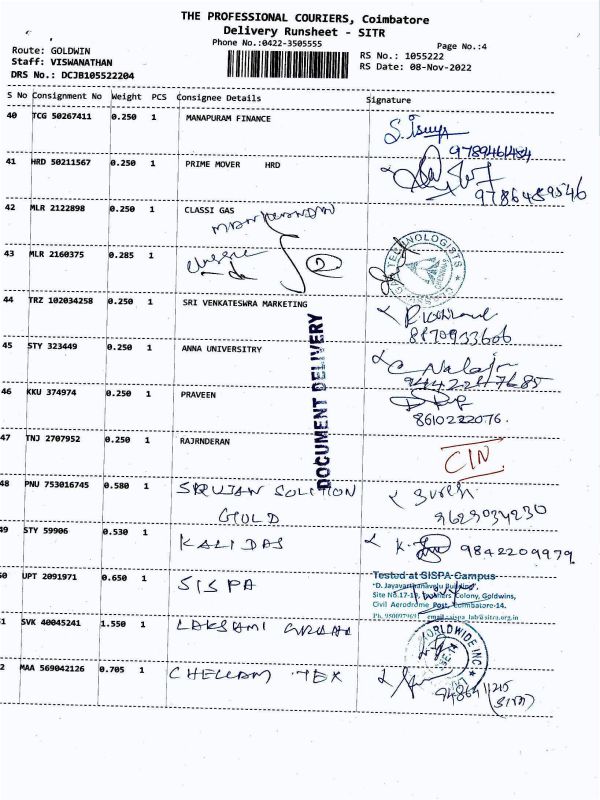 THE PROFESSIONAL COURIERS, Coimbatore
Delivery Runsheet - SITR
Phone No.:0422-3505555
Page No.:4
Route: GOLDWIN
RS No.: 1055222
Staff: VISWANATHAN
RS Date: 08-Nov-2022
DRS No.: DCJB105522204
S No Consignment No Weight PCS Consignee Details Signature
40 TCG 50267411 0.250 1 MANAPURAM FINANCE
9789461484
41 HRD 50211567 0.250 1 PRIME MOVER HRD
9786459546
42 MLR 2122898 0.250 1 CLASSI GAS
43 MLR 2160375 0.285 1
2
TECHNOLOGISTS
44 TRZ 102034258 0.250 1 SRI VENKATESWRA MARKETING
8870933606
45 STY 323449 0.250 1 ANNA UNIVERSITRY
46 KKU 374974 0.250 1 PRAVEEN
8610222076.
DOCUMENT DELIVERY
47 TNJ 2707952 0.250 1 RAJRNDERAN
CIN
48 PNU 753016745 0.580 1 SRUJAN SOLUTION
GOLD
Suresh
9629034230
49 STY 59906 0.530 1 KALIDAS
9842209979
0 UPT 2091971 0.650 1 SISPA
Tested at SISPA Campus
Civil Aerodrome Post, Coimbatore-14.
1 SVK 40045241 1.550 1 LAKSHMI
WORLDWIDE INC
2 MAA 569042126 0.705 1 CHELLAM TEX